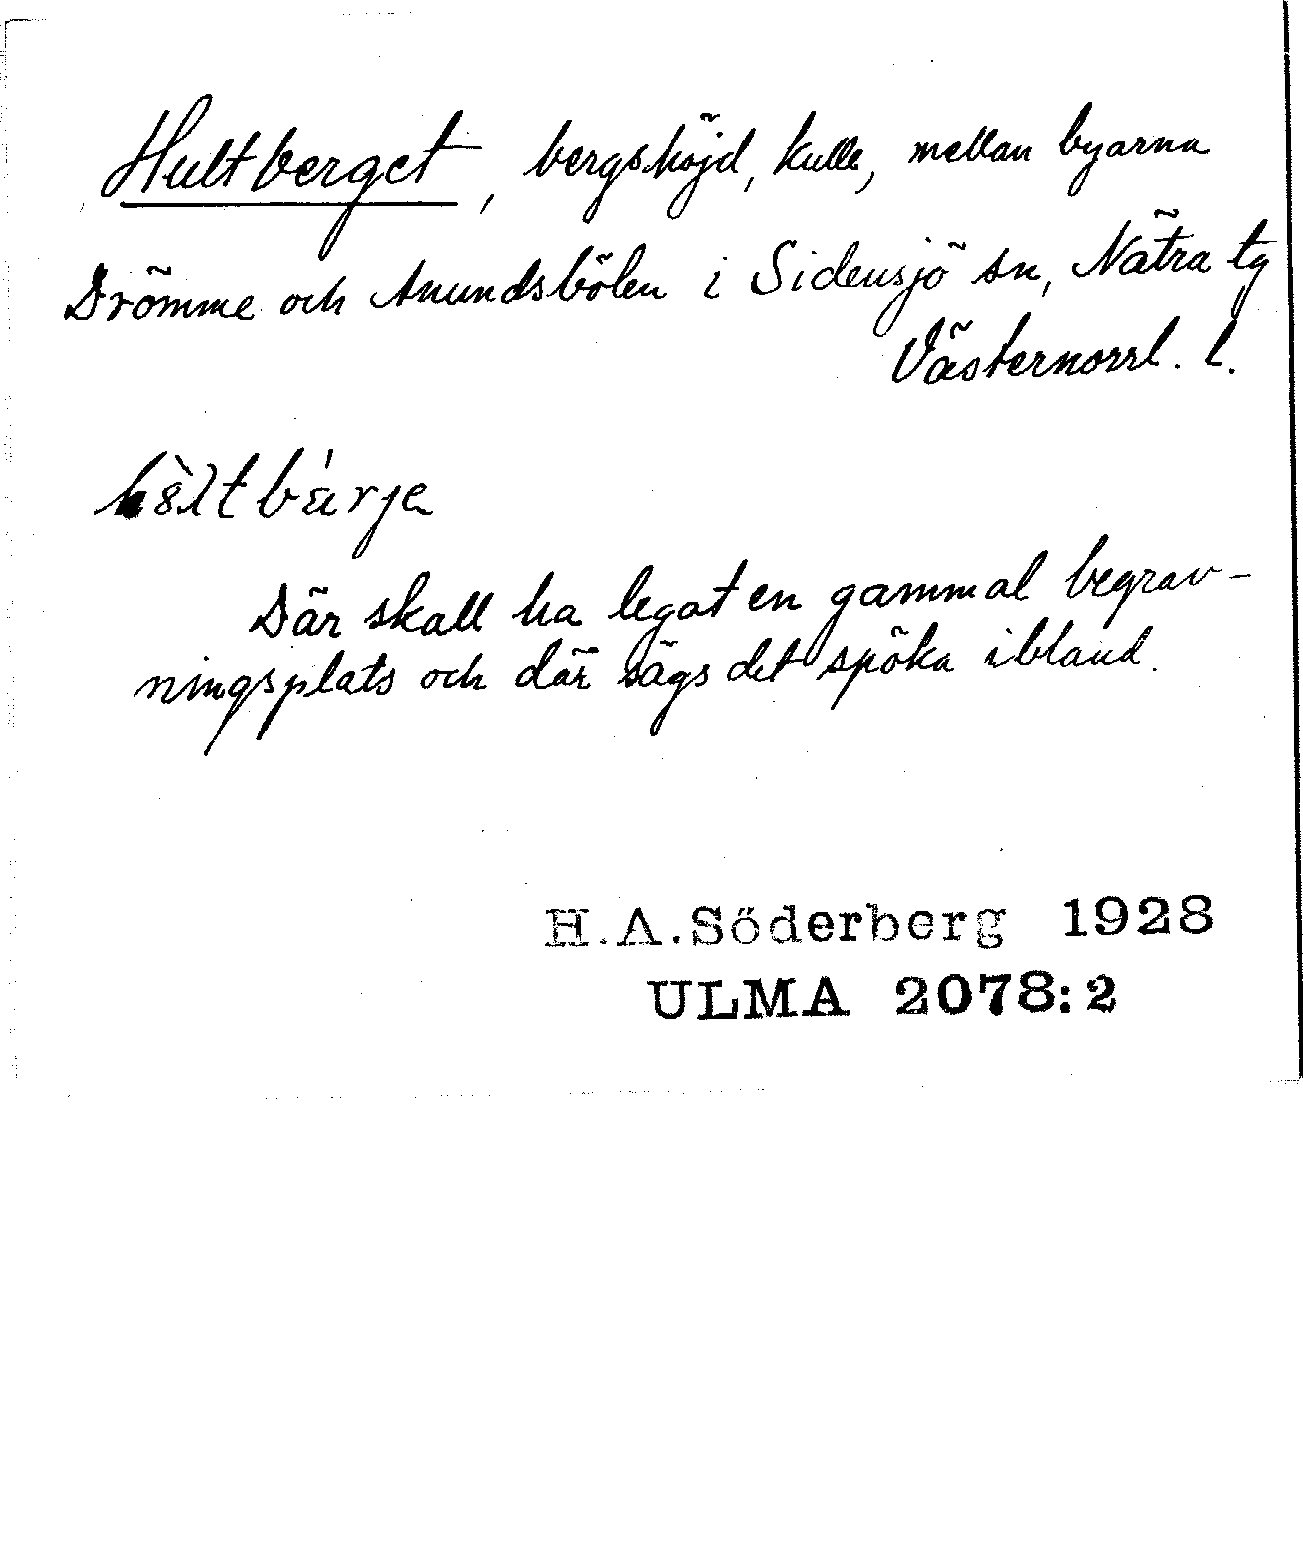 Hultberget, bergshöjd, kulle, mellan byarna
Drömme och Anundsbölen i Sidensjö sn, Nätra tg
Västernorrl. l.
Där skall ha legat en gammal begrav-
ningsplats och där sägs det spöka ibland.
H.A.Söderberg 1928
ULMA 2078:2